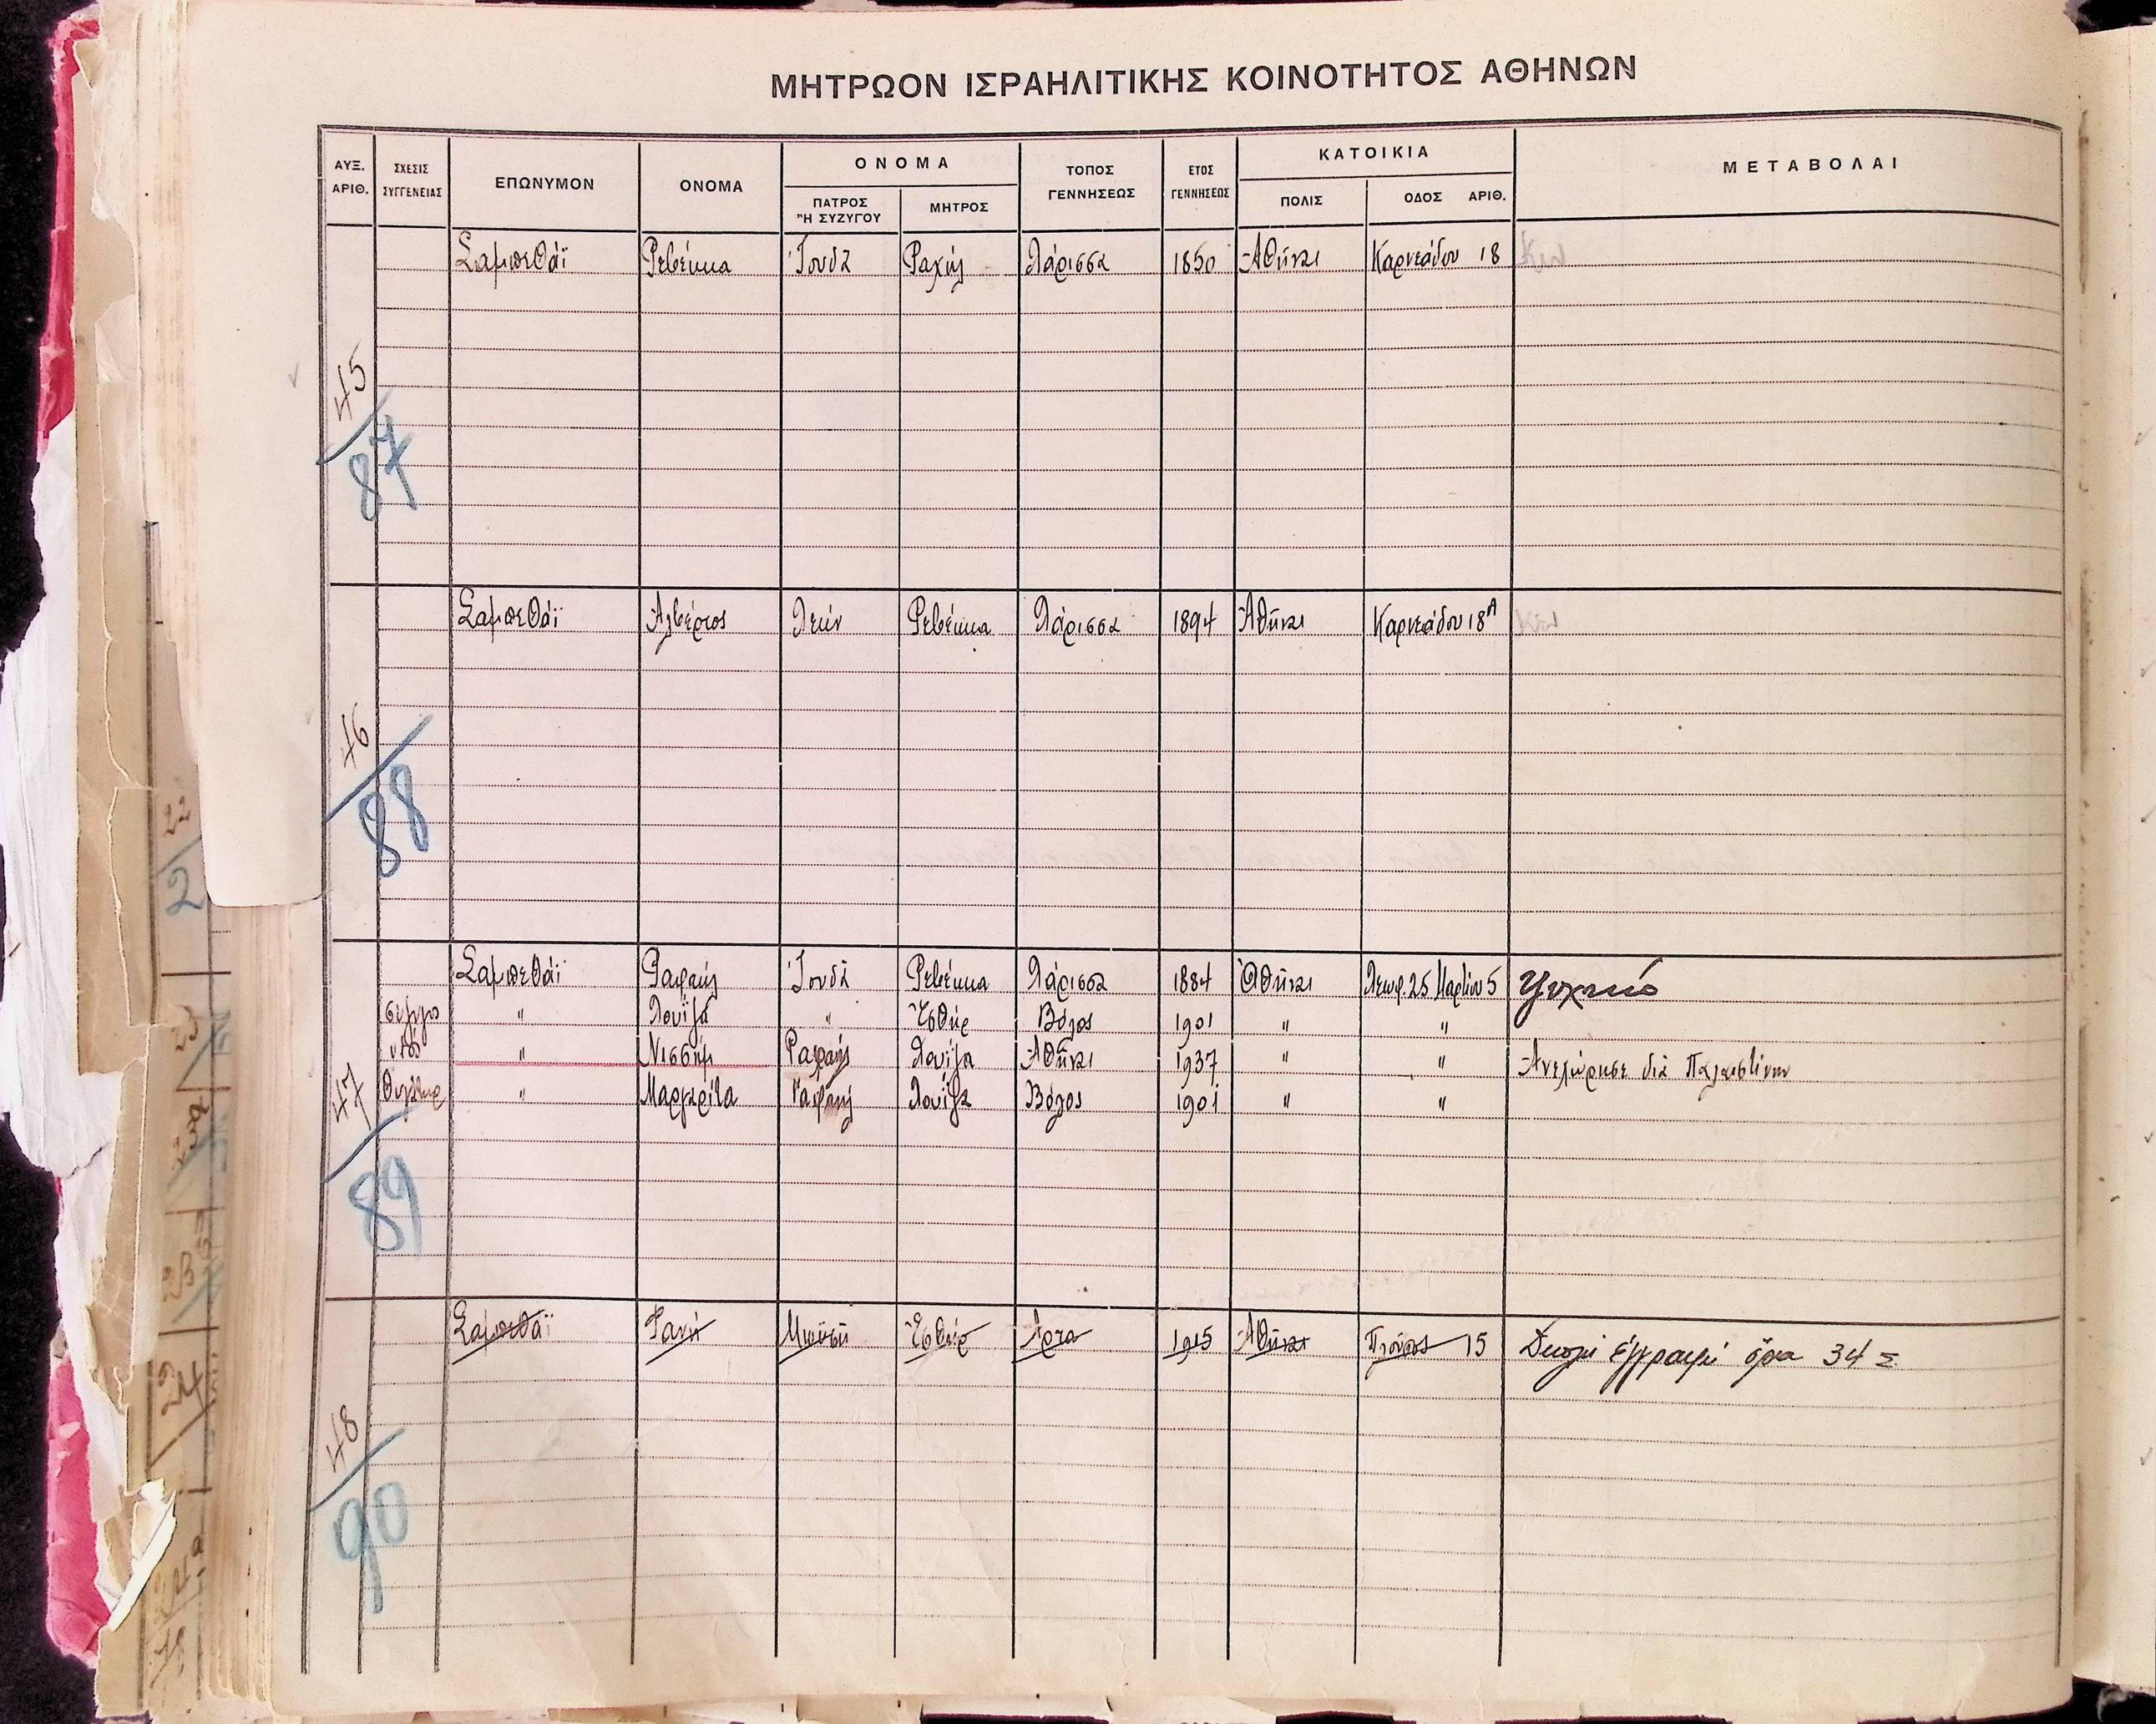 ΜΗΤΡΩΟΝ ΙΣΡΑΗΛΙΤΙΚΗΣ ΚΟΙΝΟΤΗΤΟΣ ΑΘΗΝΩΝ
ΑΥΞ. ΑΡΙΘ. ΣΧΕΣΙΣ ΣΥΓΓΕΝΕΙΑΣ ΕΠΩΝΥΜΟΝ ΟΝΟΜΑ ΟΝΟΜΑ ΠΑΤΡΟΣ Ἢ ΣΥΖΥΓΟΥ ΜΗΤΡΟΣ ΤΟΠΟΣ ΓΕΝΝΗΣΕΩΣ ΕΤΟΣ ΓΕΝΝΗΣΕΩΣ ΚΑΤΟΙΚΙΑ ΠΟΛΙΣ ΟΔΟΣ ΑΡΙΘ. ΜΕΤΑΒΟΛΑΙ
Σαμπεθάϊ Ρεβέκκα Ἰουδᾶ Ραχήλ Λάρισσα 1850 Ἀθῆναι Καρνεάδου 18
45
87
Σαμπεθάϊ Ἀλβέρτος Λεών Ρεβέκκα Λάρισσα 1894 Ἀθῆναι Καρνεάδου 18Α
46
88
Σαμπεθάϊ Ραφαήλ Ἰουδᾶ Ρεβέκκα Λάρισσα 1884 Ἀθῆναι Λεωφ. 25 Μαρτίου 5 Ψυχικό
σύζυγος " Λουΐζα " Ἐσθήρ Βόλος 1901 " "
υἱός " Νισσήμ Ραφαήλ Λουΐζα Ἀθῆναι 1937 " " Ἀνεχώρησε διὰ Παλαιστίνην
θυγάτηρ " Μαργαρίτα Ραφαήλ Λουΐζα Βόλος 1901 " "
47
89
Σαμπεθάϊ Φανή Μωϋσῆ Ἐσθήρ Ἄρτα 1915 Ἀθῆναι 15 Διπλή ἐγγραφή ὅρα 34 Σ
48
90